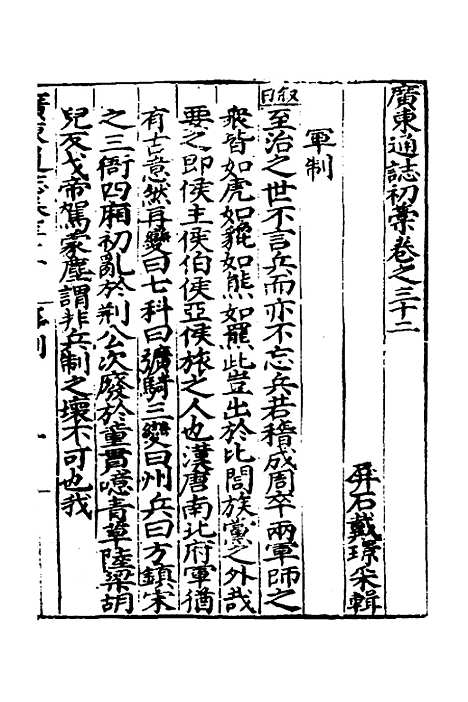 廣東通誌初藁卷之三十二
屏石戴璟采輯
軍制
叙曰至治之世不言兵而亦不忘兵若稽成周卒兩軍師之
衆皆如虎如貔如熊如羆此豈出於比閭族黨之外哉
要之即侯主侯伯侯亞侯旅之人也漢唐南北府軍猶
有古意然再變曰七科曰彍騎三變曰州兵曰方鎮宋
之三衙四廂初亂於荆公次廢於童貫噫青草陸梁胡
兒反戈帝駕蒙塵謂非兵制之壞不可也我